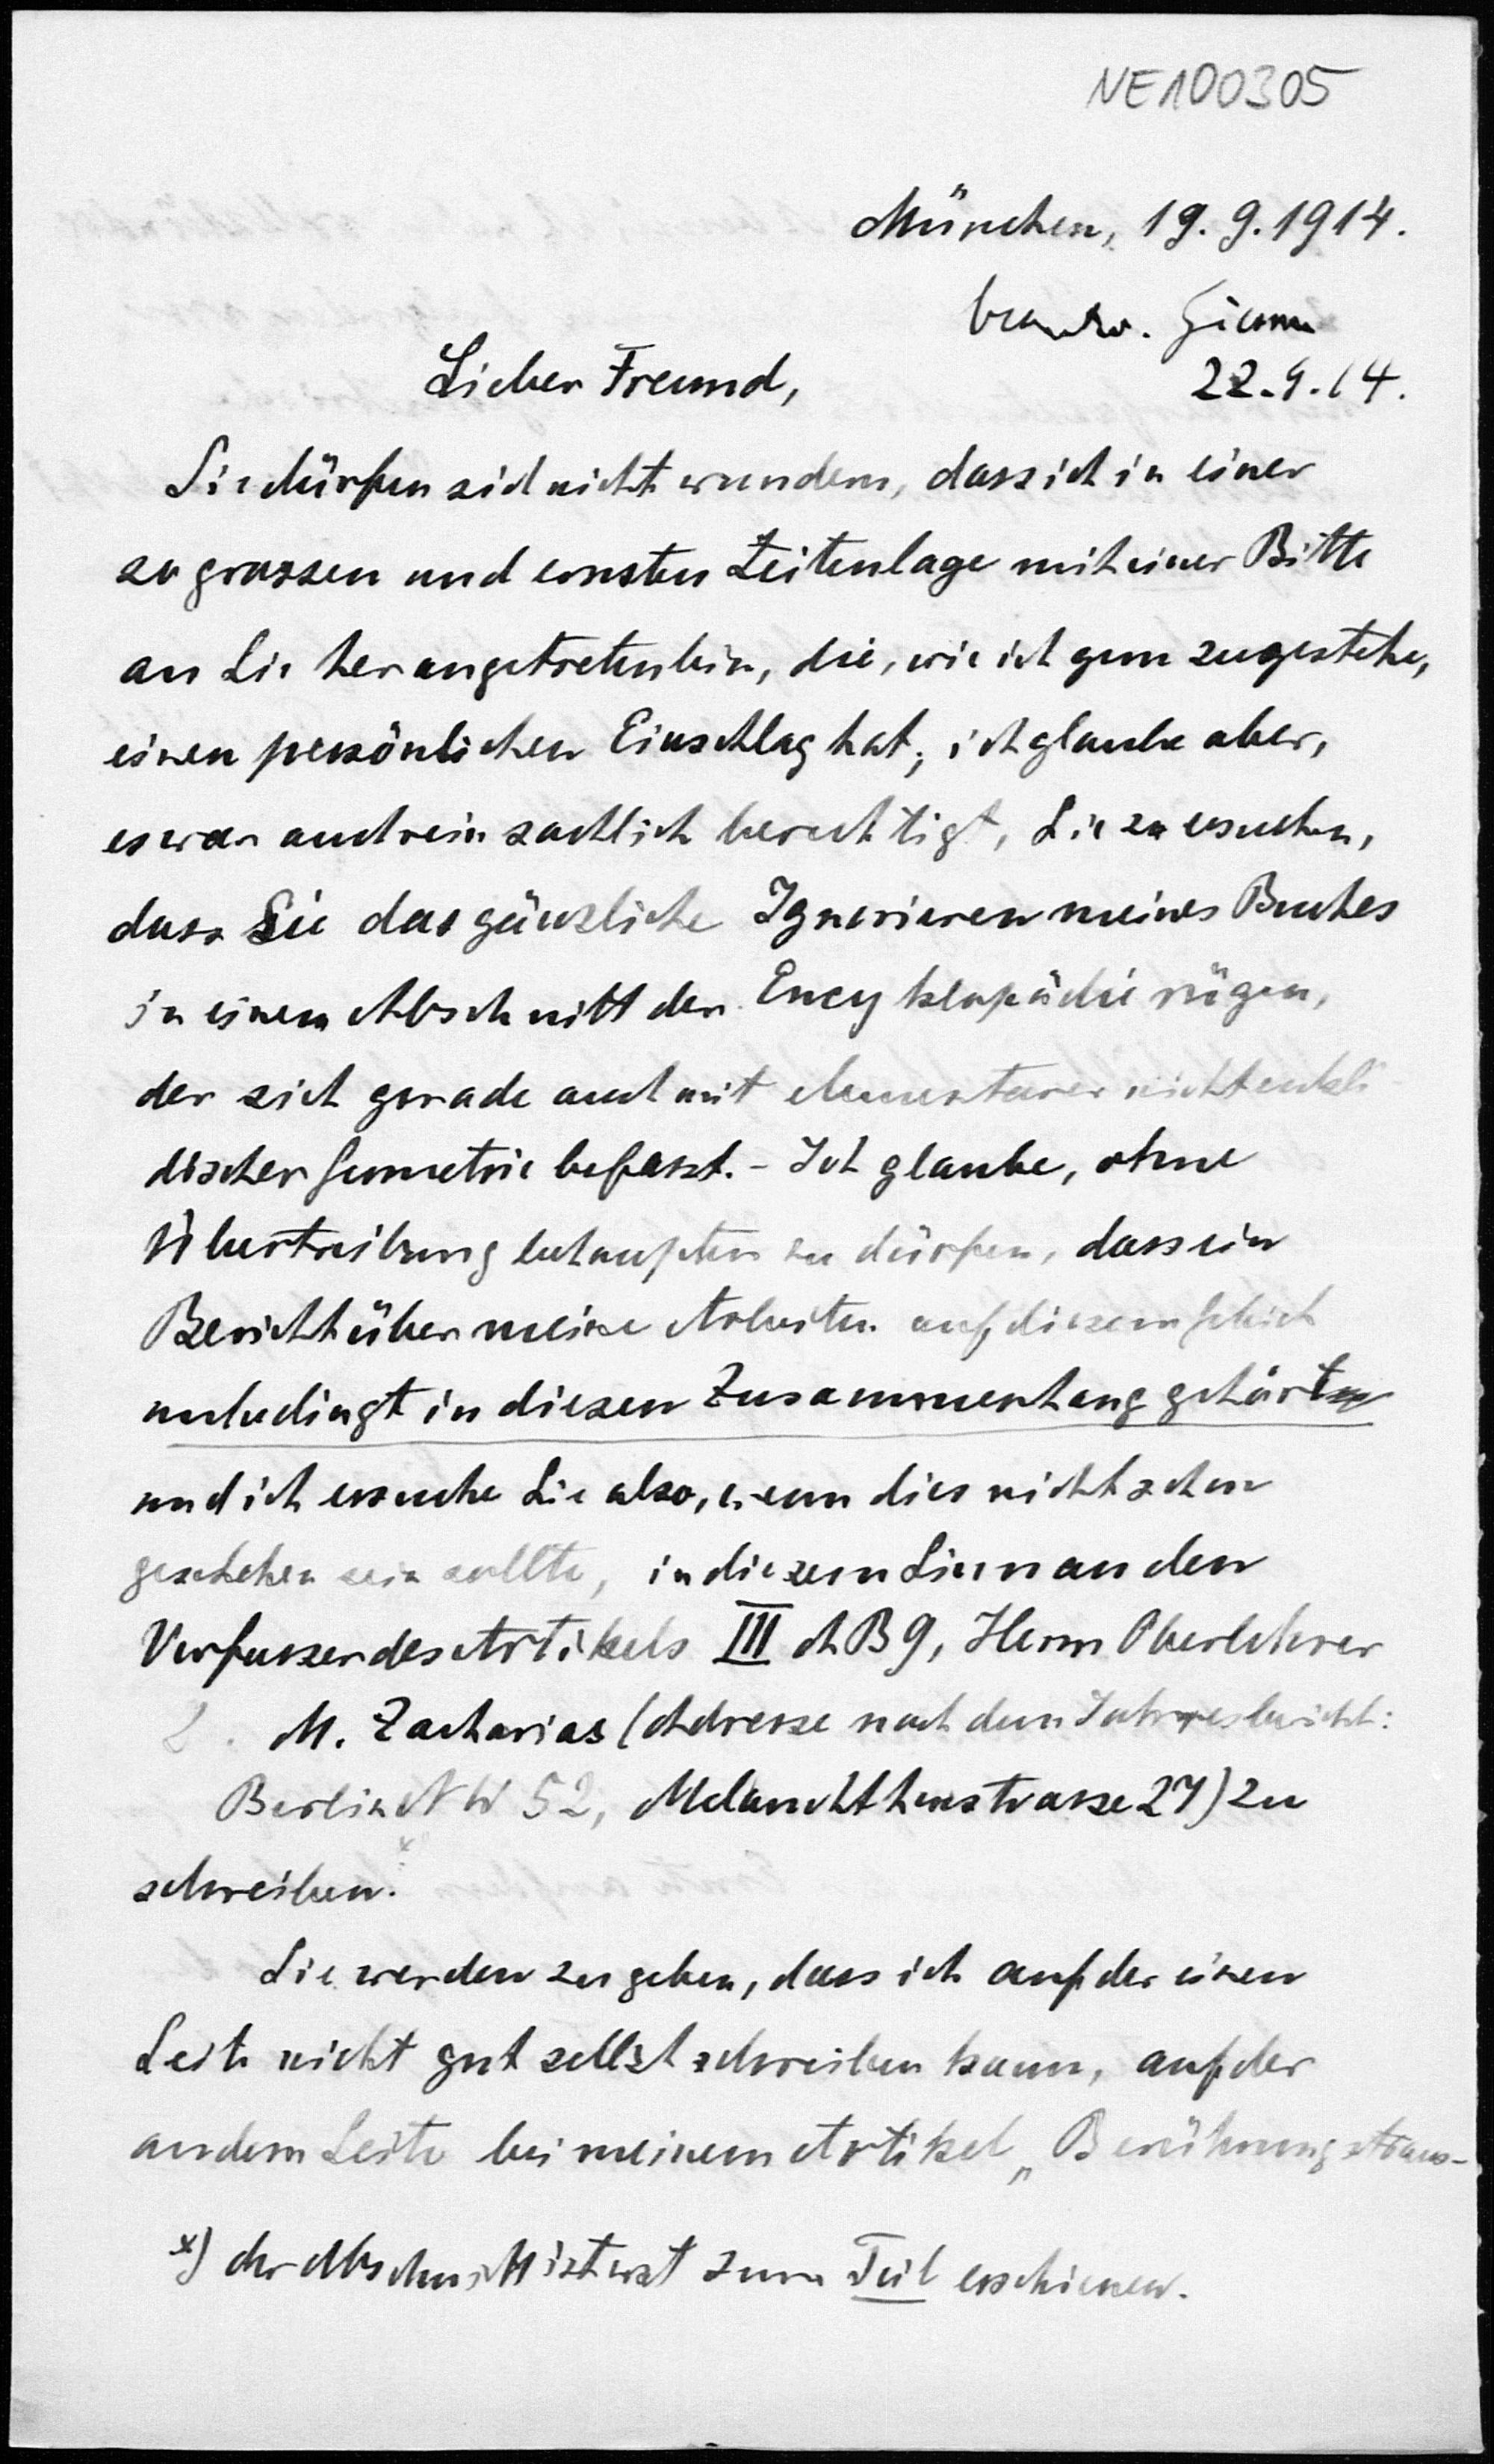 NE100305
München, 19. 9. 1914.
beantw. Giessen
22.9.14.
Lieber Freund,
Sie dürfen sich nicht wundern, dass ich in einer
so grossen und ernsten Zeitenlage mit einer Bitte
an Sie herangetreten bin, die, wie ich gern zugestehe,
einen persönlichen Einschlag hat; ich glaube aber,
es war auch rein sachlich berechtigt, Sie zu ersuchen,
dass Sie das gänzliche Ignorieren meines Buches
in einem Abschnitt der Encyklopädie rügen,
der sich gerade auch mit elementarer nichteukli
discher Geometrie befasst. - Ich glaube, ohne
Übertreibung behaupten zu dürfen, dass ein
Bericht über meine Arbeiten auf diesem Gebiet
unbedingt in diesen Zusammenhang gehört
und ich ersuche Sie also, wenn dies nicht schon
geschehen sein sollte, in diesem Sinn an den
Verfasser des Artikels III AB 9, Herrn Oberlehrer
M. Zacharias (Adresse nach dem Jahresbericht:
Berlin NW 52, Melanchthonstrasse 27) zu
schreiben.*
Sie werden zugeben, dass ich auf der einen
Seite nicht gut selbst schreiben kann, auf der
andern Seite bei meinem Artikel „Berührungstrans-
*) der Abschnitt ist erst zum Teil erschienen.